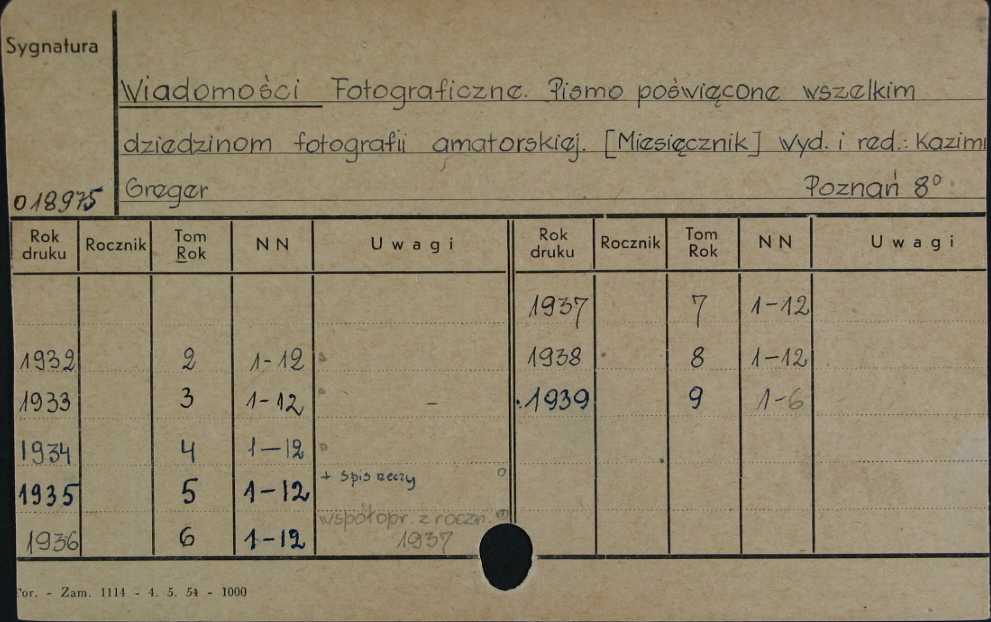 Sygnatura
Wiadomości Fotograficzne. Pismo poświęcone wszelkim
dziedzinom fotografii amatorskiej. [Miesięcznik] Wyd. i red.: Kazimi
018975 Greger Poznań 8°
Rok druku Rocznik Tom Rok NN Uwagi Rok druku Rocznik Tom Rok NN Uwagi
1937 7 1-12
1932 2 1-12 1938 8 1-12
1933 3 1-12 – 1939 9 1-6
1934 4 1-12
1935 5 1-12 + spis rzeczy
współopr. z roczn.
1936 6 1-12 1937
For. - Zam. 1114 - 4. 5. 54 - 1000